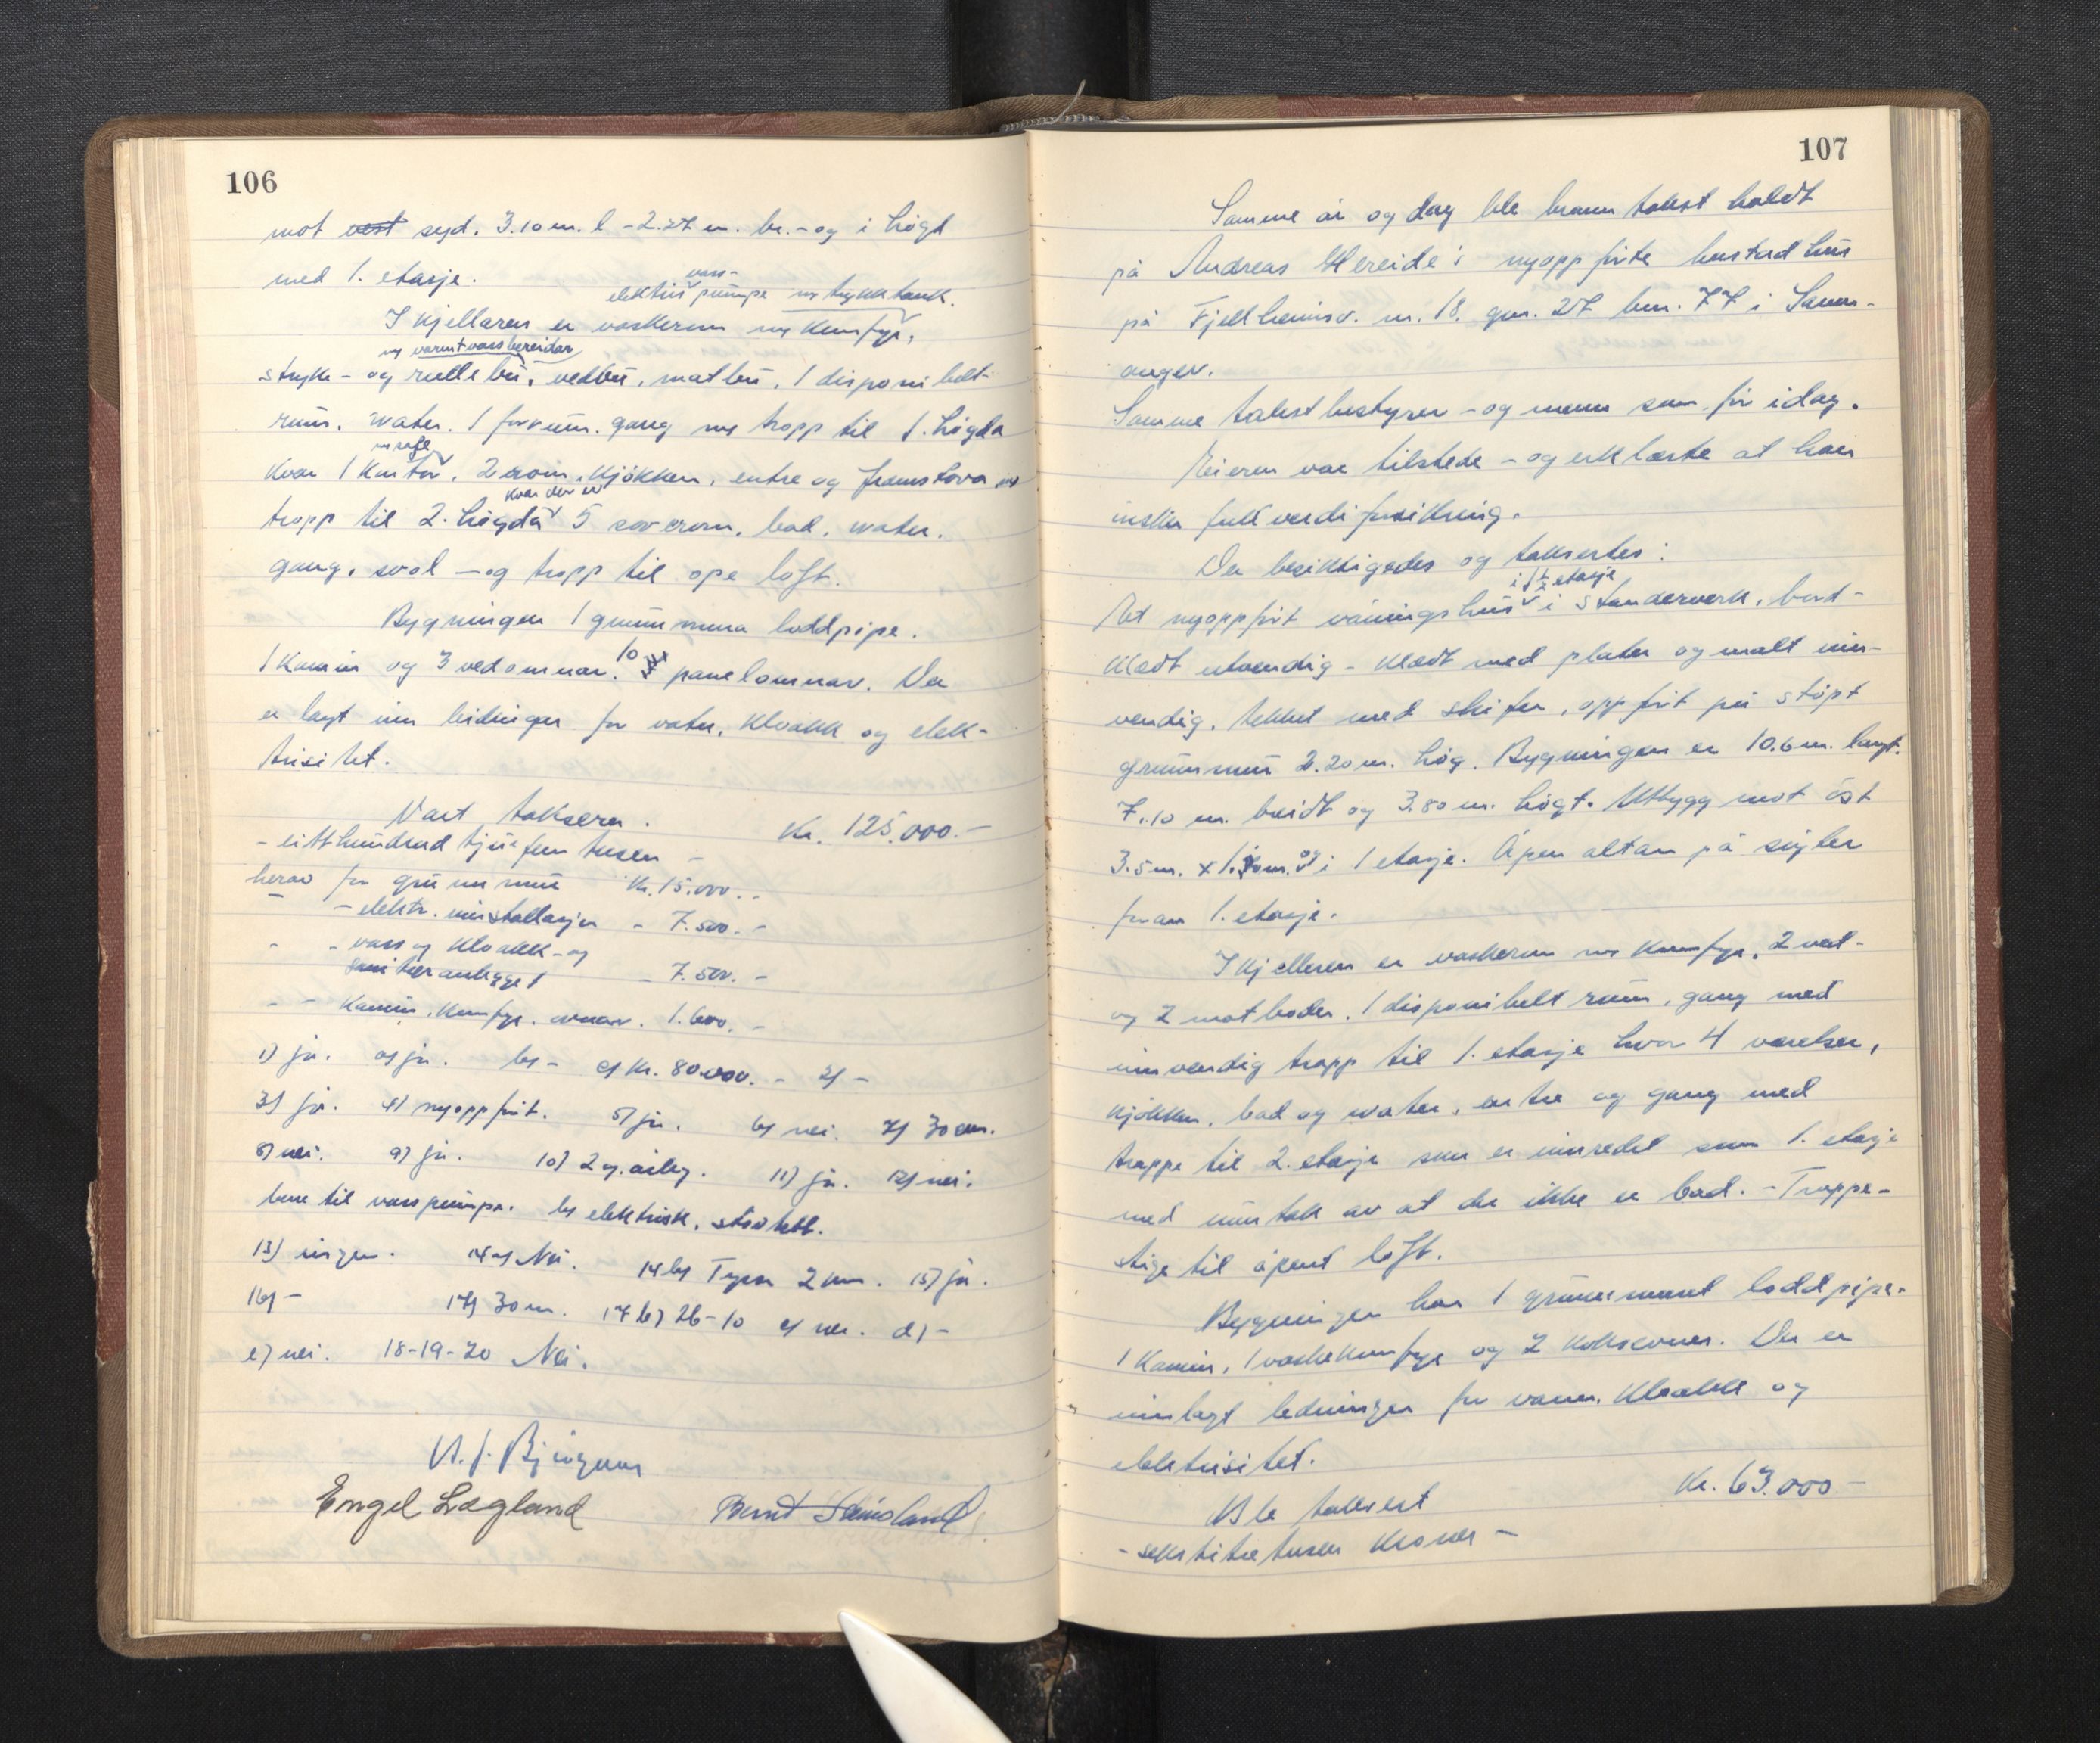 106
mot vest syd. 3.10 m. l - 2.27 m. br. - og i högd
med 1. etasje.
vass-
elektris pumpe m trykktank.
I kjellaren er vaskerum m komfyr,
m varmtvassbereidar
stryke - og rullebu, vedbu, matbu, 1 disponibelt
rum, water. 1 forrum. gang m tropp til 1. högda
kvar 1 kontor, 2 rom, kjökken, entre og framstova m
kvar der er
tropp til 2. högda 5 soverom, bad, water.
gang, sval - og tropp til ope loft.
Bygningen 1 grunnmura loddpipe.
1 kamin og 3 vedomnar. 10 panelomnar. Der
er lagt inn leidninger for vatn, kloakk og elek-
trisitet.
Vart taksera. Kr. 125.000.-
- eitthundrad tjuefem tusen -
herav for grunnmur Kr. 15.000.-
- - elektr. installasjon - 7.500.-
- - vass og kloakk - og
sanitæranlegget - 7.500.-
- - kamin, komfyr, ovnar. 1.600.-
1) ja. a) ja. b) - c) Kr. 80.000.- 2) -
3) ja. 4) nyoppfört. 5) ja. 6) nei. 7) 30 cm.
8) nei. 9) ja. 10) 2 g. årleg. 11) ja. 12) nei.
bare til vasspumpe. b) elektrisk.
13) ingen. 14 a) Nei. 14 b) Tysse 2 km. 15) ja.
16) - 17) 30 m. 17 b) 26-10 c) nei. d) -
e) nei. 18-19-20 Nei.
Engel Lægland
107
Samme år og dag ble branntakst holdt
på Andreas Hereide's nyoppförte bustadhus
på Fjellheimsv. nr. 18. gnr. 27 bnr. 77 i Samn-
anger.
Samme takstbestyrer - og menn som för idag.
Eieren var tilstede - og erklærte at han
önsker fullverdiforsikring.
Der besiktigedes og taksertes:
i 1 1/2 etasje
Et nyoppfört våningshus i standerverk, bord-
klædt utvendig - klædt med plater og malt inn-
vendig, tekket med skifer, oppfört på stöpt
grunnmur 2.20 m. hög. Bygningen er 10.6 m. langt.
7.10 m. breidt og 3.80 m. högt. Utbygg mot öst
3.5 m. x m. og i 1 etasje. Åpen altan på söyler
foran 1. etasje.
I kjelleren er vaskerum m komfyr, 2 ved-
og 2 matboder. 1 disponibelt rum, gang med
innvendig trapp til 1. etasje hvor 4 værelser,
kjökken, bad og water, entre og gang med
trappe til 2. etasje som er innredet som 1. etasje
med unntak av at der ikke er bad. - Trappe-
stige til åpent loft.
Bygningen har 1 grunnmuret loddpipe.
1 kamin, 1 vaskekomfyr og 2 koksovner. Der er
innlagt ledninger for vann, kloakk og
elektrisitet.
Ble taksert Kr. 63.000 -
- sekstitretusen kroner -